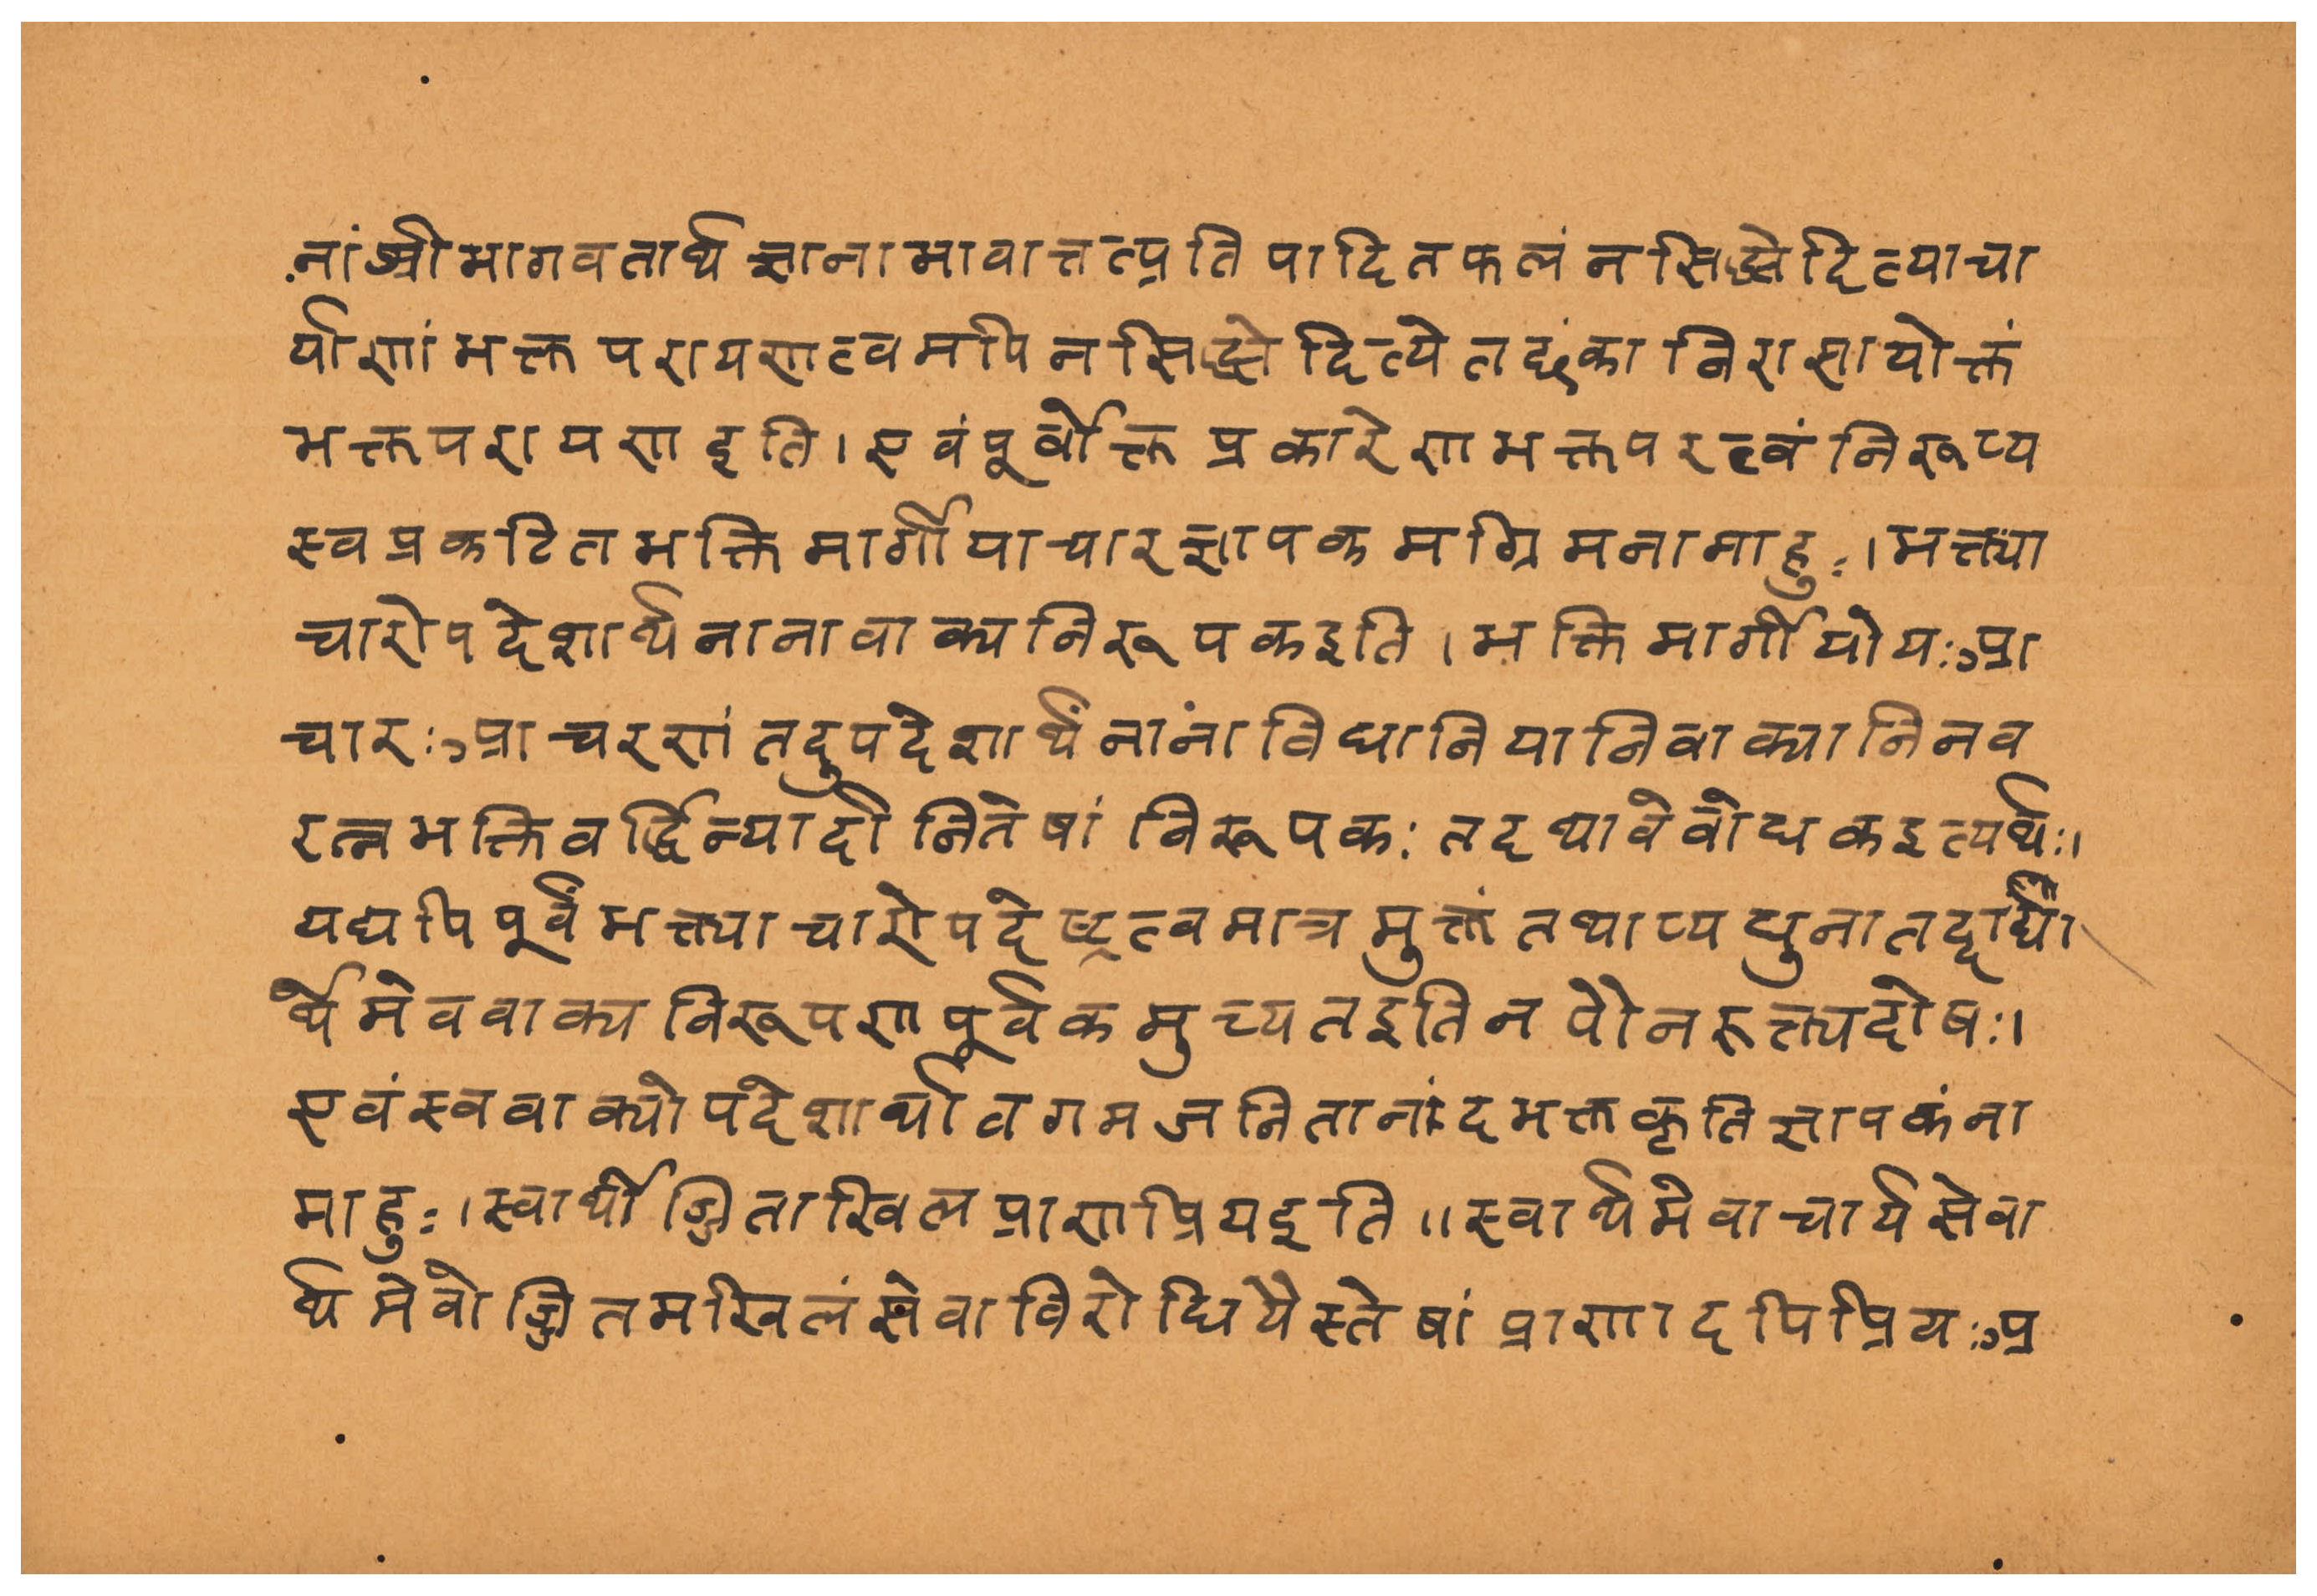 नांश्रीभागवतार्थज्ञानाभावात्तत्प्रतिपादितफलंनसिद्ध्येदित्याचा
र्याणांभक्तपरायणत्वमपिनसिद्ध्येदित्येतछंकानिरासायोक्तं
भक्तपरायणइति।एवंपूर्वोक्तप्रकारेणभक्तपरत्वंनिरूप्य
स्वप्रकटितभक्तिमार्गीयाचारज्ञापकमग्रिमनामाहुः।भक्त्या
चारोपदेशार्थनानावाक्यनिरूपकइति।भक्तिमार्गीयोयःआ
चारःआचरणंतदुपदेशार्थंनांनाविधानियानिवाक्यानिनव
रत्नभक्तिवर्द्धिन्यादीनितेषांनिरूपकःतदर्थावेवोधकइत्यर्थः।
यद्यपिपूर्वंभक्त्याचारोपदेष्ट्रत्वमात्रमुक्तंतथाप्यधुनातद्दार्ढ्या
र्थमेववाक्यनिरूपणपूर्वकमुच्यतइतिनपौनरुक्त्यदोषः।
एवंस्ववाक्योपदेशार्थावगमजनितानंदभक्तकृतिज्ञापकंना
माहुः।स्वार्थोज्झिताखिलप्राणप्रियइति॥स्वार्थमेवाचार्यसेवा
र्थमेवोज्झितमखिलंसेवाविरोधियैस्तेषांप्राणादपिप्रियःप्र